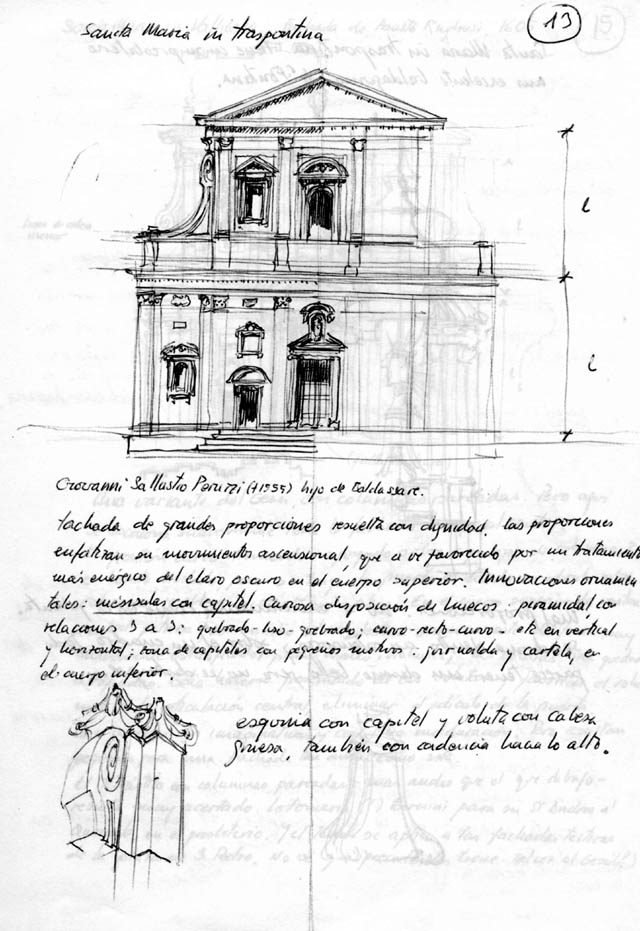 13
Sancta Maria in traspontina
l
l
Giovanni Sallustio Peruzzi (†1555) hijo de Baldassare.
fachada de grandes proporciones resuelta con dignidad. las proporciones
enfatizan su movimiento ascensional, que se ve favorecido por un tratamiento
más enérgico del claro oscuro en el cuerpo superior. Innovaciones ornamen
tales: ménsulas con capitel. Curiosa disposición de huecos: piramidal, con
relaciones 3 a 3: quebrado-liso-quebrado; curvo-recto-curvo- etc en vertical
y horizontal; zona de capiteles con pequeños motivos: guirnalda y cartela, en
el cuerpo inferior.
esquina con capitel y voluta con cabeza
gruesa, también con cadencia hacia lo alto.